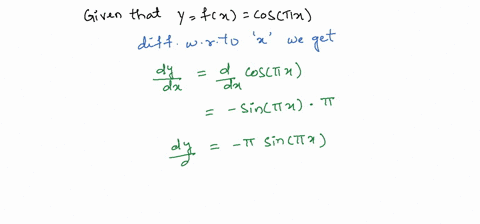 Given that y = f(x) = cos(πx)
diff. w.r.to 'x' we get
dy/dx = d/dx cos(πx)
= -sin(πx) · π
dy/d = -π sin(πx)